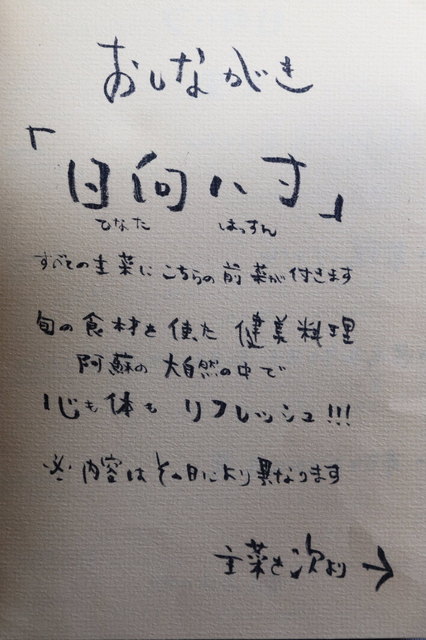 おしながき
「日向八寸」
ひなた はっすん
すべての主菜にこちらの前菜が付きます
旬の食材を使た健美料理
阿蘇の大自然の中で
心も体もリフレッシュ!!!
※内容はその日により異なります
主菜を次より→